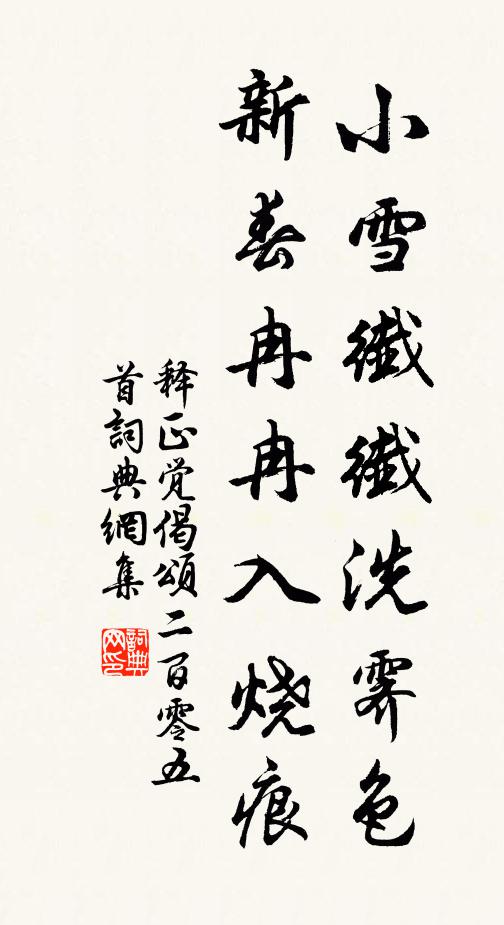 小雪纖纖洗霽色
新春冉冉入烧痕
释正觉偈頌二百零五
首詞典網集
詞典网印